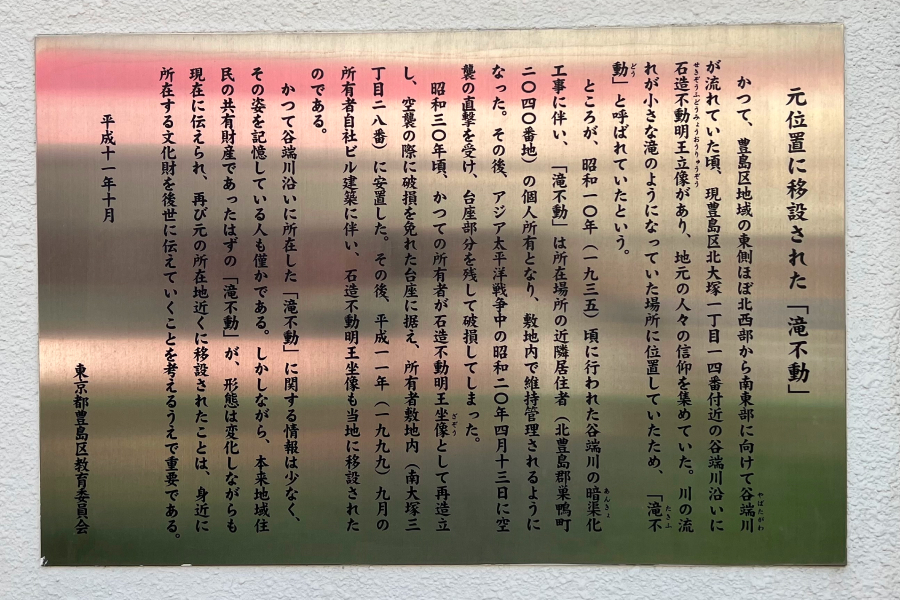 元位置に移設された「滝不動」
かつて、豊島区地域の東側ほぼ北西部から南東部に向けて谷端川
やばたがわ
が流れていた頃、現豊島区北大塚一丁目一四番付近の谷端川沿いに
石造不動明王立像があり、地元の人々の信仰を集めていた。川の流
せきぞうふどうみょうおうりゅうぞう
れが小さな滝のようになっていた場所に位置していたため、「滝不
たきふ
動」と呼ばれていたという。
どう
ところが、昭和一〇年（一九三五）頃に行われた谷端川の暗渠化
あんきょ
工事に伴い、「滝不動」は所在場所の近隣居住者（北豊島郡巣鴨町
二〇四〇番地）の個人所有となり、敷地内で維持管理されるように
なった。その後、アジア太平洋戦争中の昭和二〇年四月十三日に空
襲の直撃を受け、台座部分を残して破損してしまった。
昭和三〇年頃、かつての所有者が石造不動明王坐像として再造立
ざぞう
し、空襲の際に破損を免れた台座に据え、所有者敷地内（南大塚三
丁目二八番）に安置した。その後、平成一一年（一九九九）九月の
所有者自社ビル建築に伴い、石造不動明王坐像も当地に移設された
のである。
かつて谷端川沿いに所在した「滝不動」に関する情報は少なく、
その姿を記憶している人も僅かである。しかしながら、本来地域住
民の共有財産であったはずの「滝不動」が、形態は変化しながらも
現在に伝えられ、再び元の所在地近くに移設されたことは、身近に
所在する文化財を後世に伝えていくことを考えるうえで重要である。
平成十一年十月
東京都豊島区教育委員会